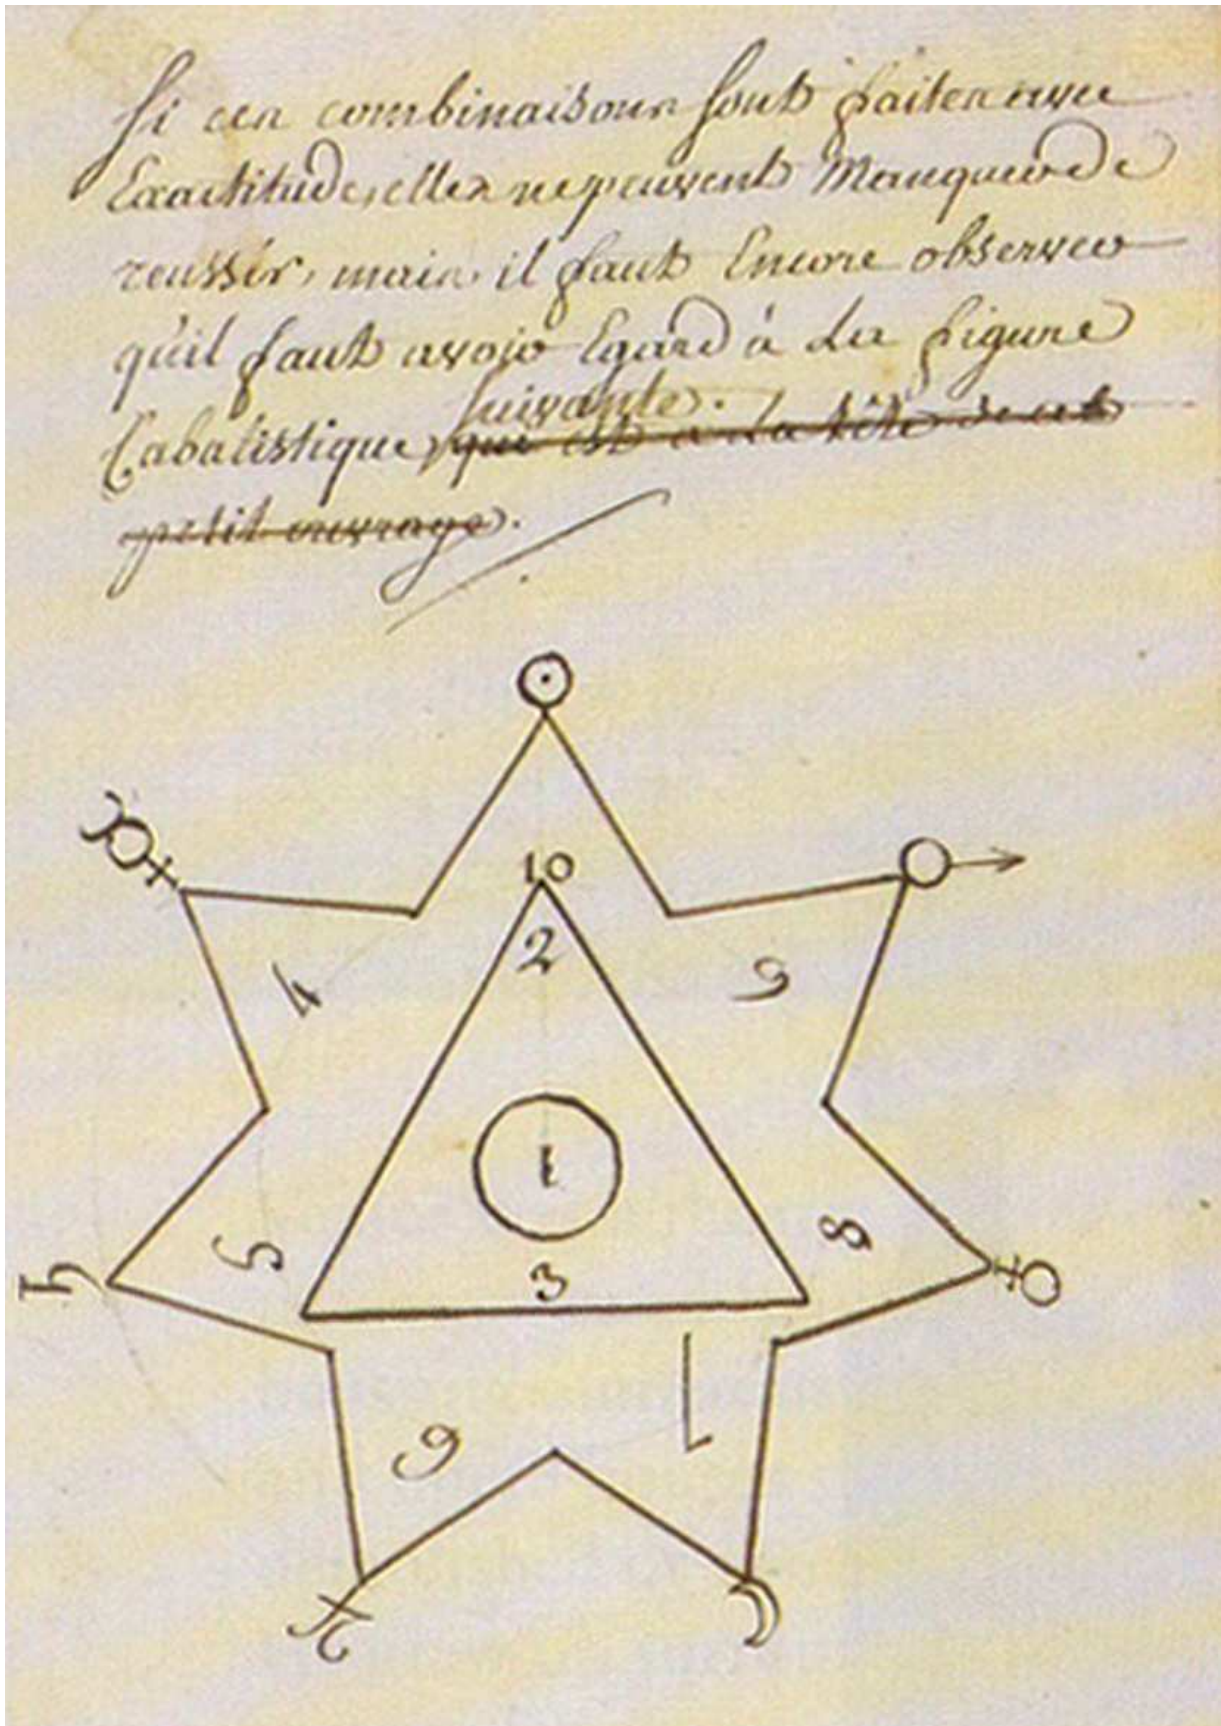 Si ces combinaisons sont faites avec
Exactitude, elles ne peuvent Manquer de
reussir, mais il faut Encore observer
qu'il faut avoir Egard à La figure
suivante.
Cabalistique, que est a La tête de cet
petit ouvrage.
10
2
4
9
1
5
8
3
6
7